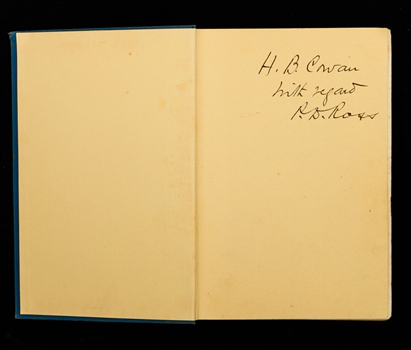 H. B. Cowan
with regard
P. D. Ross